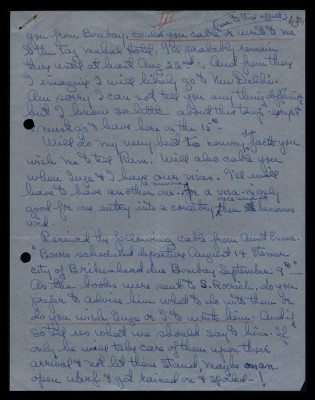 (you to this office)
you from Bombay, could you cable or write to me
to the Taj Mahal Hotel. I'll probably remain
there until at least Aug 22nd; And from there
I imagine I will likely go to New Delhi.
Am sorry I can not tell you any thing definite
but I know so little about this trip - except
I must go & leave here on the 15th.
Will do my very best to convey facts you
wish me to tell Ram. Will also cable you
when Inge & I have our visas. I'll will
have to have another one - for a visa is only
good for one entry into a country then becomes
void.
Received the following cable from Aunt Emma.
"Books scheduled departure August 14 steamer
city of Birkenhead due Bombay September 9th" —
As the books were sent to S. Roerich, do you
prefer to advise him what to do with them or
do you wish Inge or I to write him. And if
so tell us what we should say to him. If
only he will take care of them upon their
arrival & not let them stand, maybe on an
open wharf & get rained on & spoiled - !